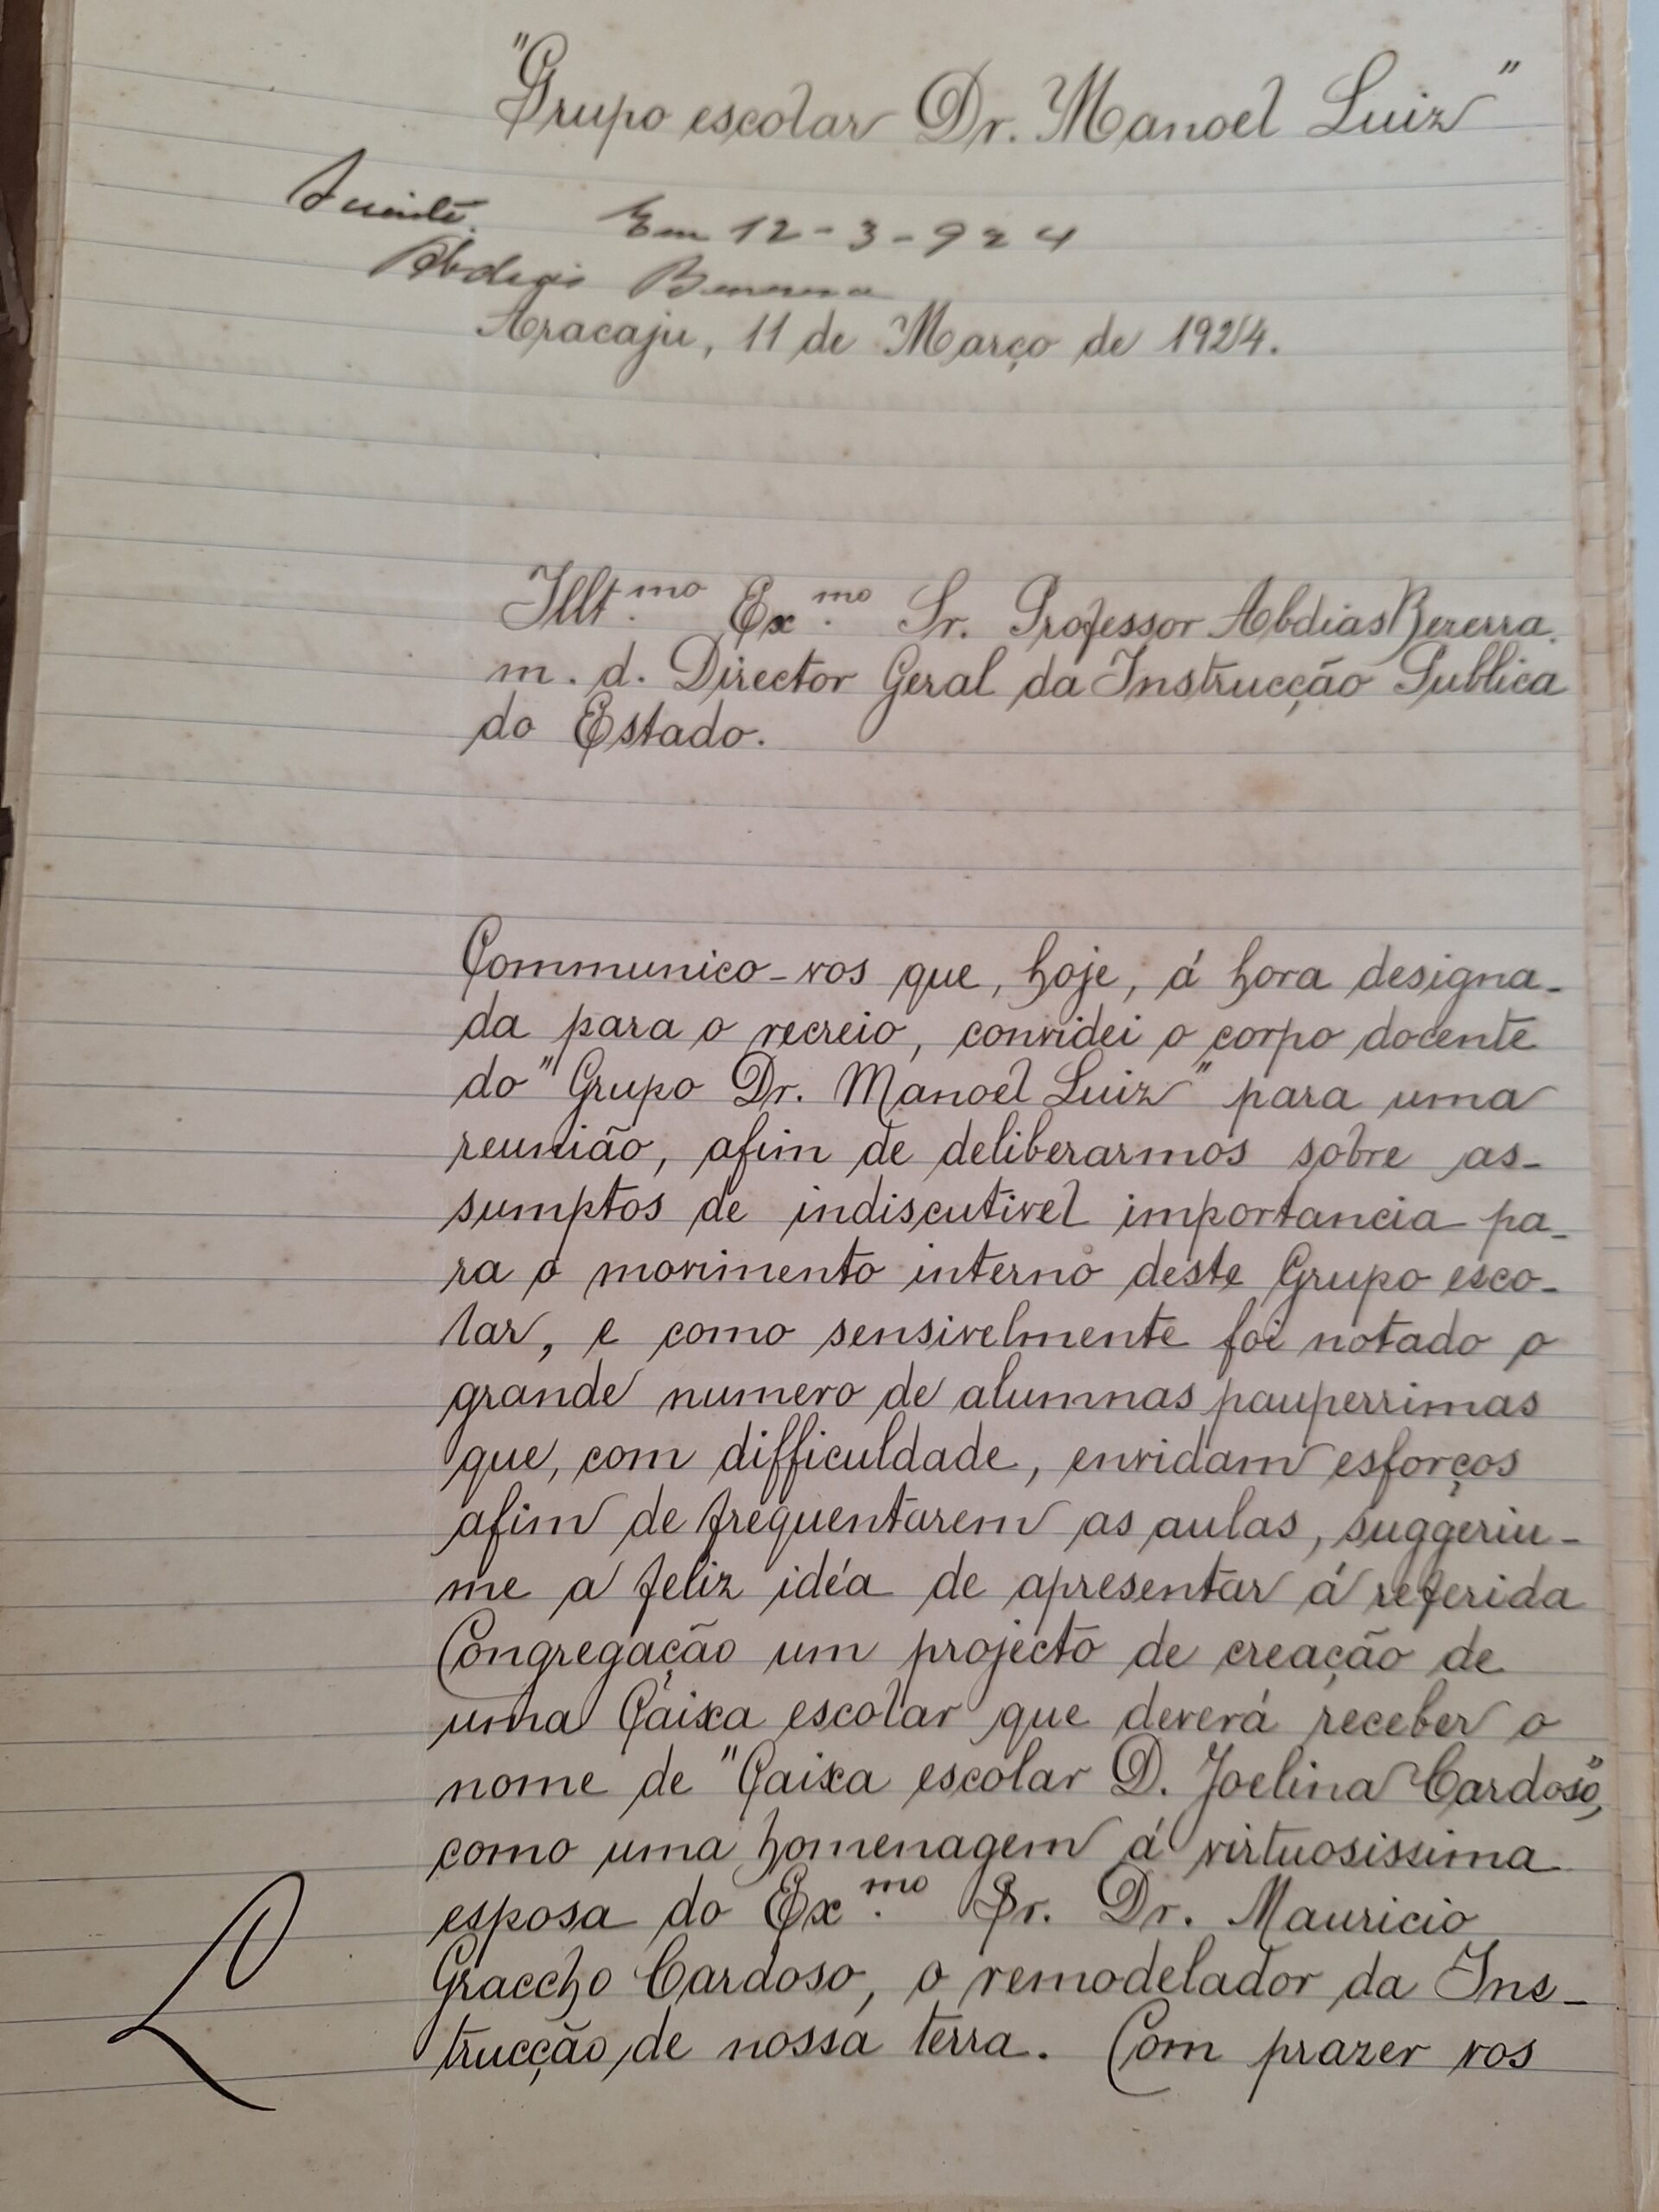 "Grupo escolar Dr. Manoel Luiz"
Em 12-3-924
Abdias Bezerra
Aracaju, 11 de Março de 1924.
Illt.mo Ex.mo Sr. Professor Abdias Bezerra.
m. d. Director Geral da Instrucção Publica
do Estado.
Communico-vos que, hoje, á hora designa-
da para o recreio, convidei o corpo docente
do "Grupo Dr. Manoel Luiz" para uma
reunião, afim de deliberarmos sobre as-
sumptos de indiscutivel importancia pa-
ra o movimento interno deste Grupo esco-
lar, e como sensivelmente foi notado o
grande numero de alumnas pauperrimas
que, com difficuldade, envidam esforços
afim de frequentarem as aulas, suggeriu-
me a feliz idéa de apresentar á referida
Congregação um projecto de creação de
uma Caixa escolar que deverá receber o
nome de "Caixa escolar D. Joelina Cardoso",
como uma homenagem á virtuosissima
esposa do Ex.mo Sr. Dr. Mauricio
Graccho Cardoso, o remodelador da Ins-
trucção de nossa terra. Com prazer vos